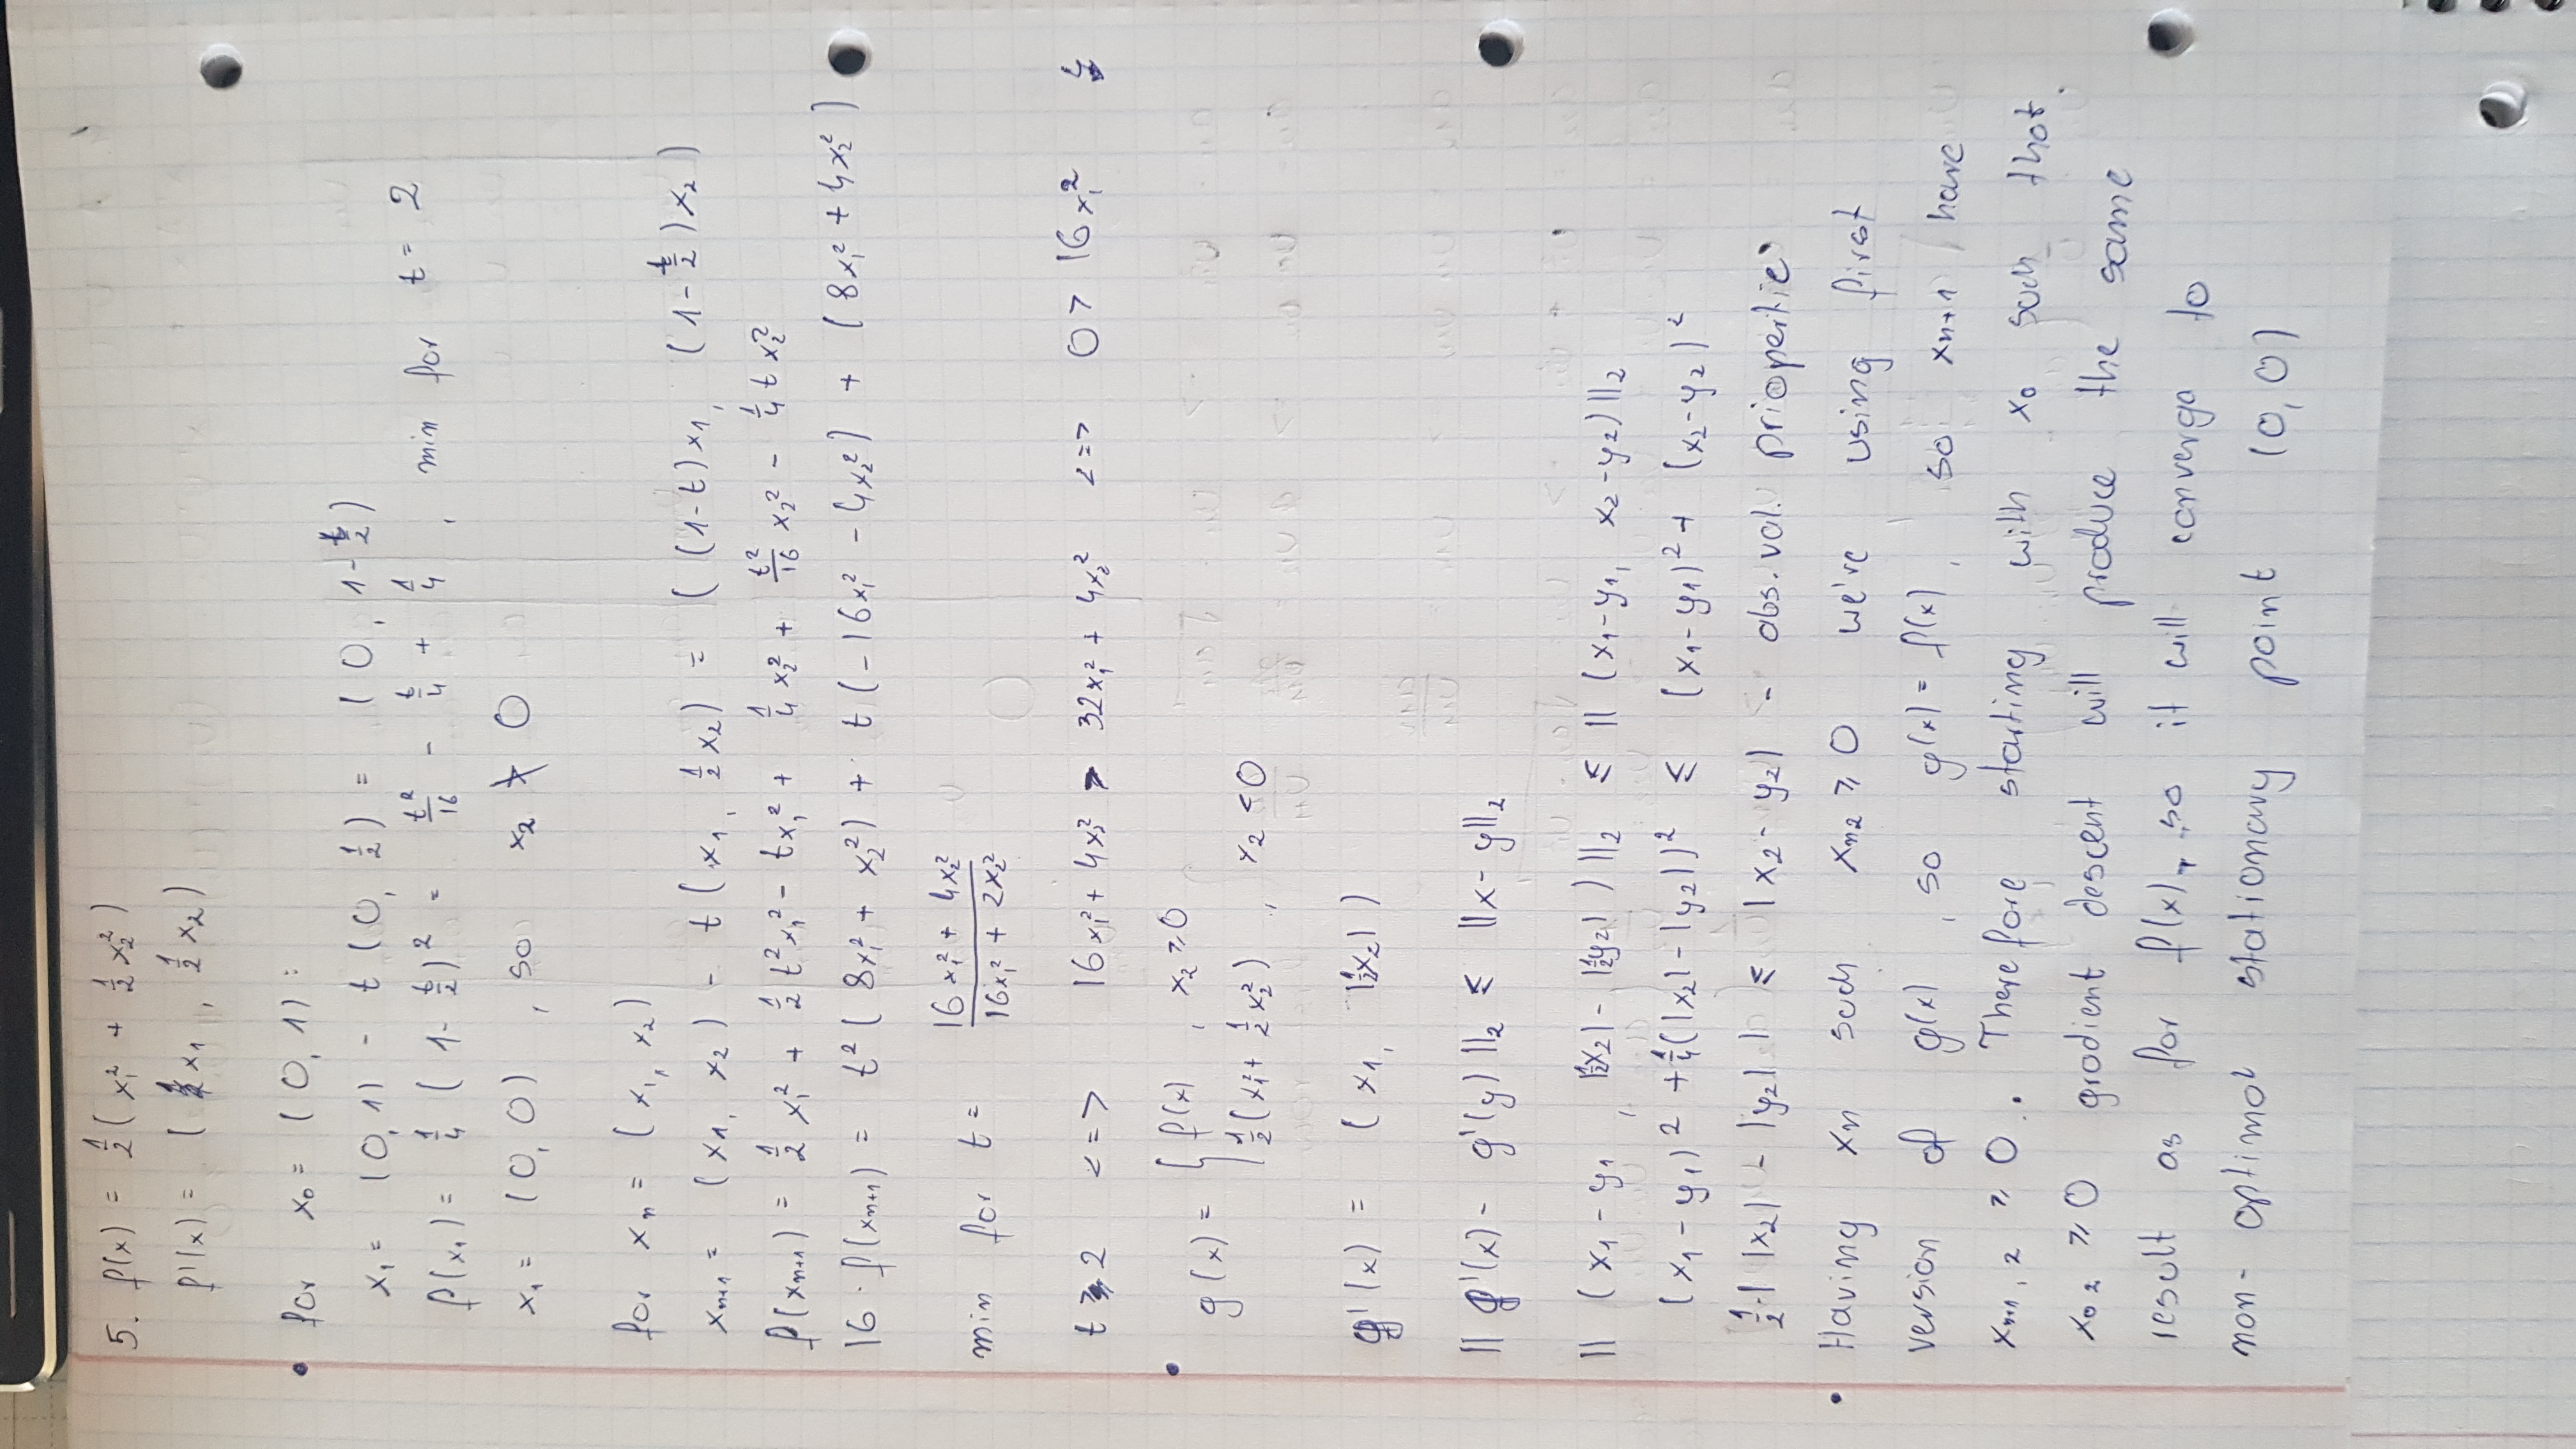 5. f(x) = 1/2 ( x₁² + 1/2 x₂² )
f'(x) = ( 1x₁ , 1/2 x₂ )
for x₀ = ( 0, 1 ) :
x₁ = (0, 1) - t ( 0, 1/2 ) = ( 0, 1 - t/2 )
f(x₁) = 1/4 ( 1 - t/2 )² = t²/16 - t/4 + 1/4 , min for t = 2
x₁ = (0, 0) , so x₂ ≯ 0
for xₙ = ( x₁, x₂ )
xₙ₊₁ = ( x₁, x₂ ) - t ( x₁, 1/2 x₂ ) = ( (1-t) x₁, (1 - t/2) x₂ )
f(xₙ₊₁) = 1/2 x₁² + 1/2 t² x₁² - t x₁² + 1/4 x₂² + t²/16 x₂² - 1/4 t x₂²
16 · f(xₙ₊₁) = t² ( 8x₁² + x₂² ) + t ( -16x₁² - 4x₂² ) + ( 8x₁² + 4x₂² )
min for t = (16x₁² + 4x₂²)/(16x₁² + 2x₂²)
t > 2 <=> 16x₁² + 4x₂² > 32x₁² + 4x₂² <=> 0 > 16x₁² ↯
g(x) = { f(x) , x₂ ≥ 0
1/2 ( x₁² + 1/2 x₂² ) , x₂ < 0
g'(x) = ( x₁, |1/2 x₂| )
|| g'(x) - g'(y) ||₂ ≤ || x - y ||₂
|| ( x₁ - y₁ , |1/2 x₂| - |1/2 y₂| ) ||₂ ≤ || ( x₁ - y₁, x₂ - y₂ ) ||₂
( x₁ - y₁ )² + 1/4 ( |x₂| - |y₂| )² ≤ ( x₁ - y₁ )² + ( x₂ - y₂ )²
1/2 · | |x₂| - |y₂| | ≤ | x₂ - y₂ | - abs. val. propertie
Having xₙ such xₙ₂ ≥ 0 we're using first
version of g(x) , so g(x) = f(x) , so xₙ₊₁ have
xₙ₊₁,₂ ≥ 0 . Therefore starting with x₀ such that
x₀₂ ≥ 0 gradient descent will produce the same
result as for f(x), so it will converge to
non-optimal stationary point (0, 0)